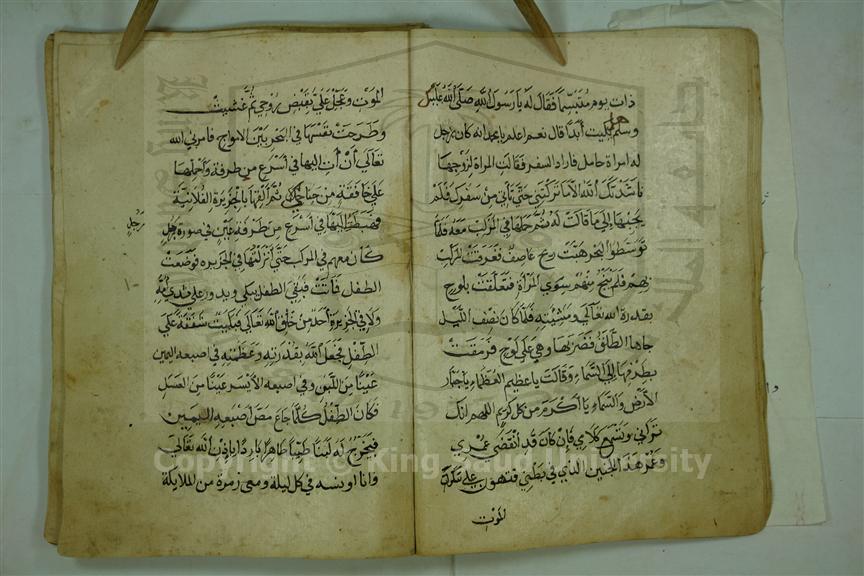 ذات يوم متبسما فقال له يا رسول الله صلى الله عليه
وسلم هل بكيت أبدا قال نعم اعلم يا محمد انه كان رجل
له امراة حامل فاراد السفر فقالت المراة لزوجها
ناشدتك الله الا ما تركتني حتى تاتي من سفرك فلم
يجبها إلى ما قالت له ثم حملها في المركب معه فلما
توسطوا البحر هبت ريح عاصف فغرقت المركب
بهم فلم ينج منهم سوي المراة فتعلقت بلوح
بقدرة الله تعالي ومشيته فلما كان نصف الليل
جاها الطلق فضربها وهي على لوح فرمقت
بطرفها إلى السماء وقالت يا عظيم العظماء يا جبار
الأرض والسماء يا أكرم من كل كريم اللهم انك
تراني وتسمع كلامي فإن كان قد انقضى عمري
وعمر هذا الجنين الذي في بطني فتهون علي سكرة
الموت
الموت وعجل علي بقبض روحي ثم غشيت
وطرحت نفسها في البحر بين الامواج فامرني الله
تعالى أن أت اليها في أسرع من طرفة وأحملها
على خافقة من جناحي ثم ألقها بالجزيرة الفلانية
فهبطت اليها في أسرع من طرفة عين في صورة رجل
رجل
كان معهم في المركب حتى أنزلتها في الجزيره فوضعت
الطفل فاتت فبقي الطفل يبكي ويدور على ثدي أمه
ولا في الجزيرة أحد من خلق الله تعالى فبكيت شفقة على
الطفل فجعل الله بقدرته وعظمته في اصبعه اليمين
عينا من اللبن وفي اصبعه الأيسر عينا من العسل
فكان الطفل كلما جاع مص أصبعه اليمين
فيخرج له لبنا طيبا طاهرا باردا باذن الله تعالى
وانا اونسه في كل ليلة ومعى زمرة من الملايكة
Copyright © King Saud University